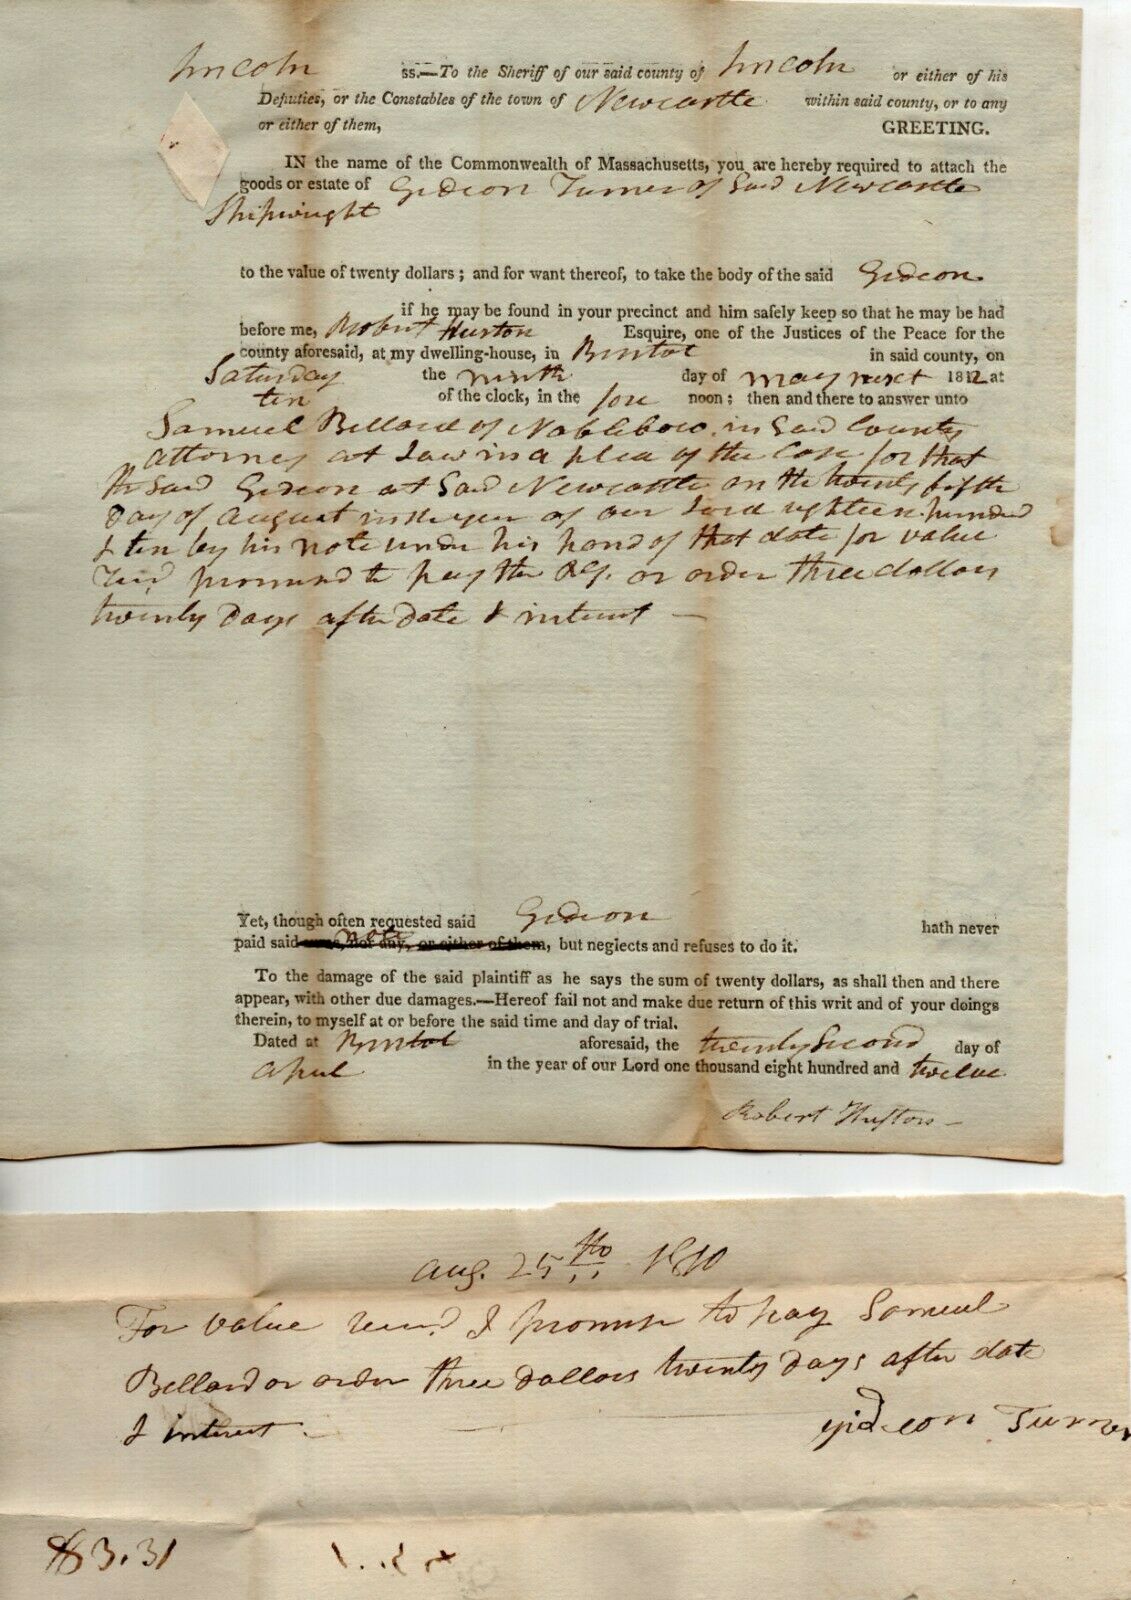 Lincoln ss.—To the Sheriff of our said county of Lincoln or either of his
Deputies, or the Constables of the town of Newcastle within said county, or to any
or either of them, GREETING.
IN the name of the Commonwealth of Massachusetts, you are hereby required to attach the
goods or estate of Gideon Turner of Said Newcastle
Shipwright
to the value of twenty dollars; and for want thereof, to take the body of the said Gideon
if he may be found in your precinct and him safely keep so that he may be had
before me, Robert Huston Esquire, one of the Justices of the Peace for the
county aforesaid, at my dwelling-house, in Bristol in said county, on
Saturday the ninth day of may next 1812 at
ten of the clock, in the fore noon; then and there to answer unto
Samuel Bellard of Nobleboro in Said County
attorney at Law in a plea of the Case for that
the Said Gideon at Said Newcastle on the twenty fifth
Day of August in the year of our Lord eighteen hundred
& ten by his note under his hand of that date for value
recd promised to pay the or order three dollars
twenty Days after date & interest —
Yet, though often requested said Gideon hath never
paid said note, but neglects and refuses to do it.
To the damage of the said plaintiff as he says the sum of twenty dollars, as shall then and there
appear, with other due damages.—Hereof fail not and make due return of this writ and of your doings
therein, to myself at or before the said time and day of trial.
Dated at Bristol aforesaid, the twenty Second day of
April in the year of our Lord one thousand eight hundred and twelve
Robert Huston —
Aug. 25th 1810
For value recd. I promise to pay Samuel
Bellard or order three dollars twenty days after date
& interest —
Gideon Turner
$3.31